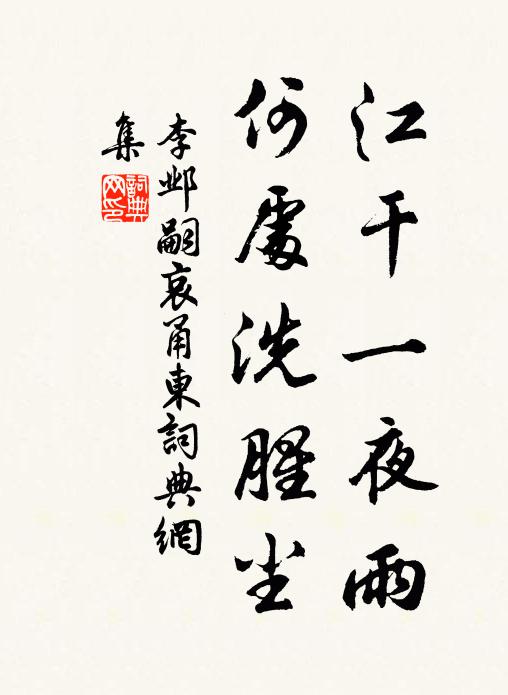 江干一夜雨
何處洗腥尘
李邺嗣哀甬東詞典網
集
詞典网印